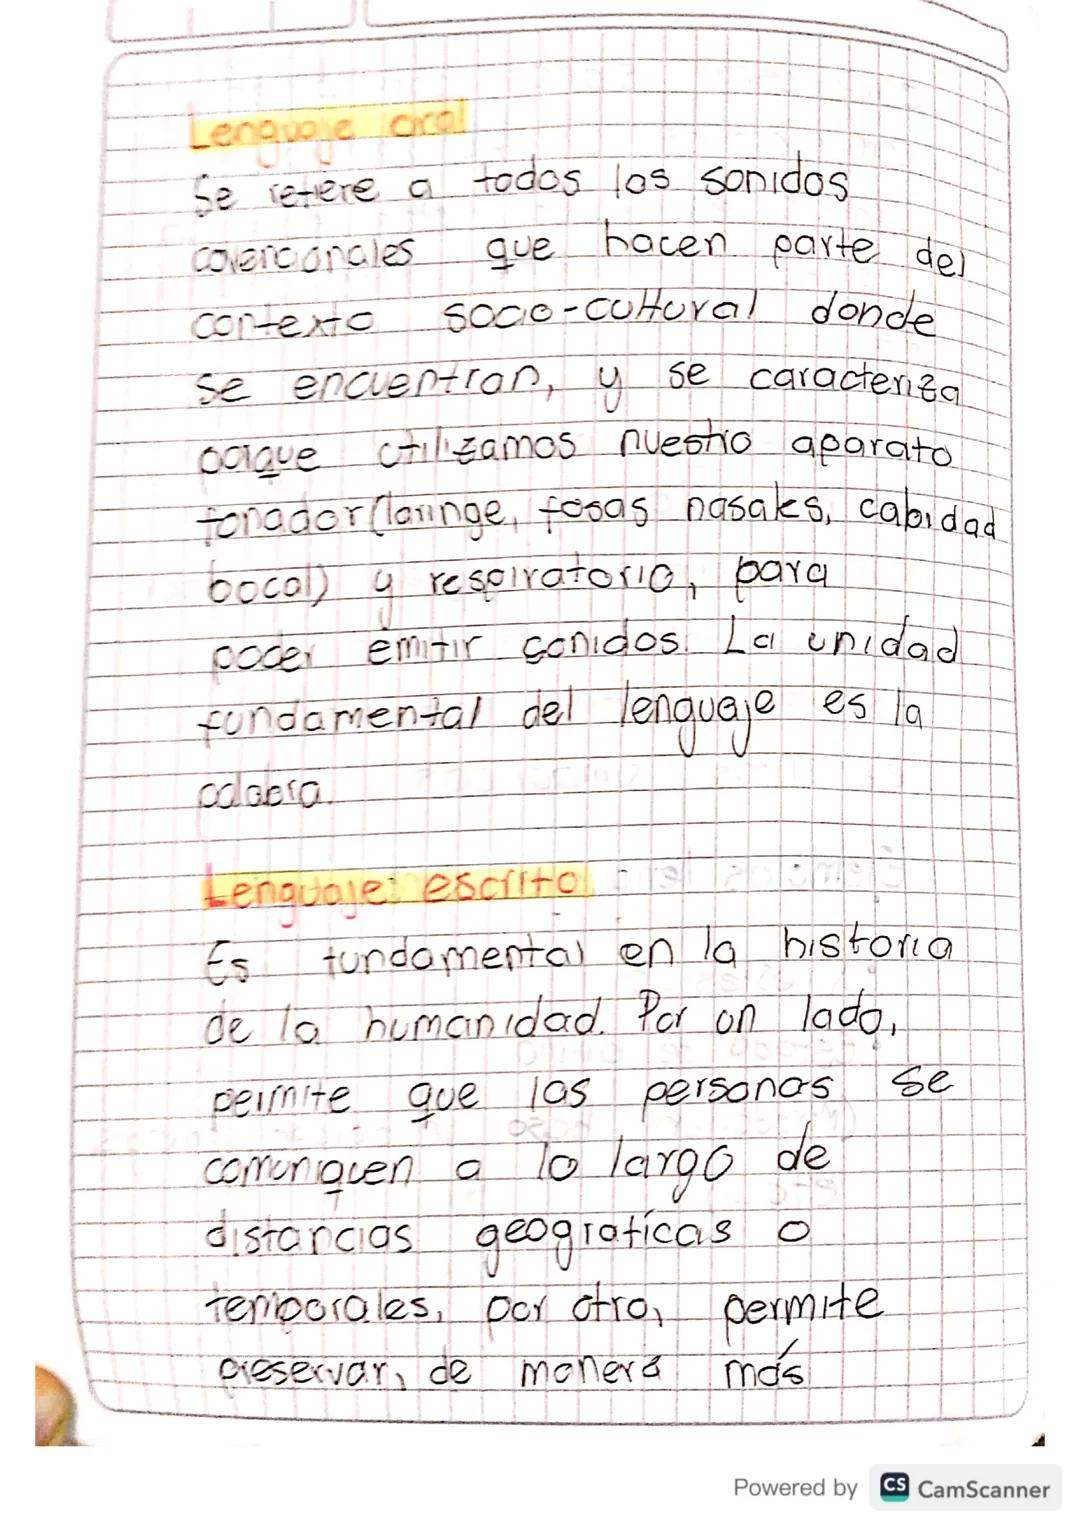 Lenguaje oral
Se refiere a todos los sonidos
covencionales que hacen parte del
contexto socio-cultural donde
se encuentran, y se caracteriza
porque utilizamos nuestro aparato
fonador (laringe, fosas nasales, cabidad
bocal) y respiratorio, para
poder emitir sonidos. La unidad
fundamental del lenguaje es la
palabra.
Lenguaje escrito
Es fundamental en la historia
de la humanidad. Por un lado,
permite que las personas se
comuniquen a lo largo de
distancias geograficas o
temporales, por otro, permite
preservar, de manera más
Powered by CS CamScanner